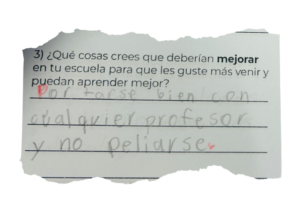 3) ¿Qué cosas crees que deberían mejorar
en tu escuela para que les guste más venir y
puedan aprender mejor?
Portarse bien con
cualquier profesor
y no peliarse.